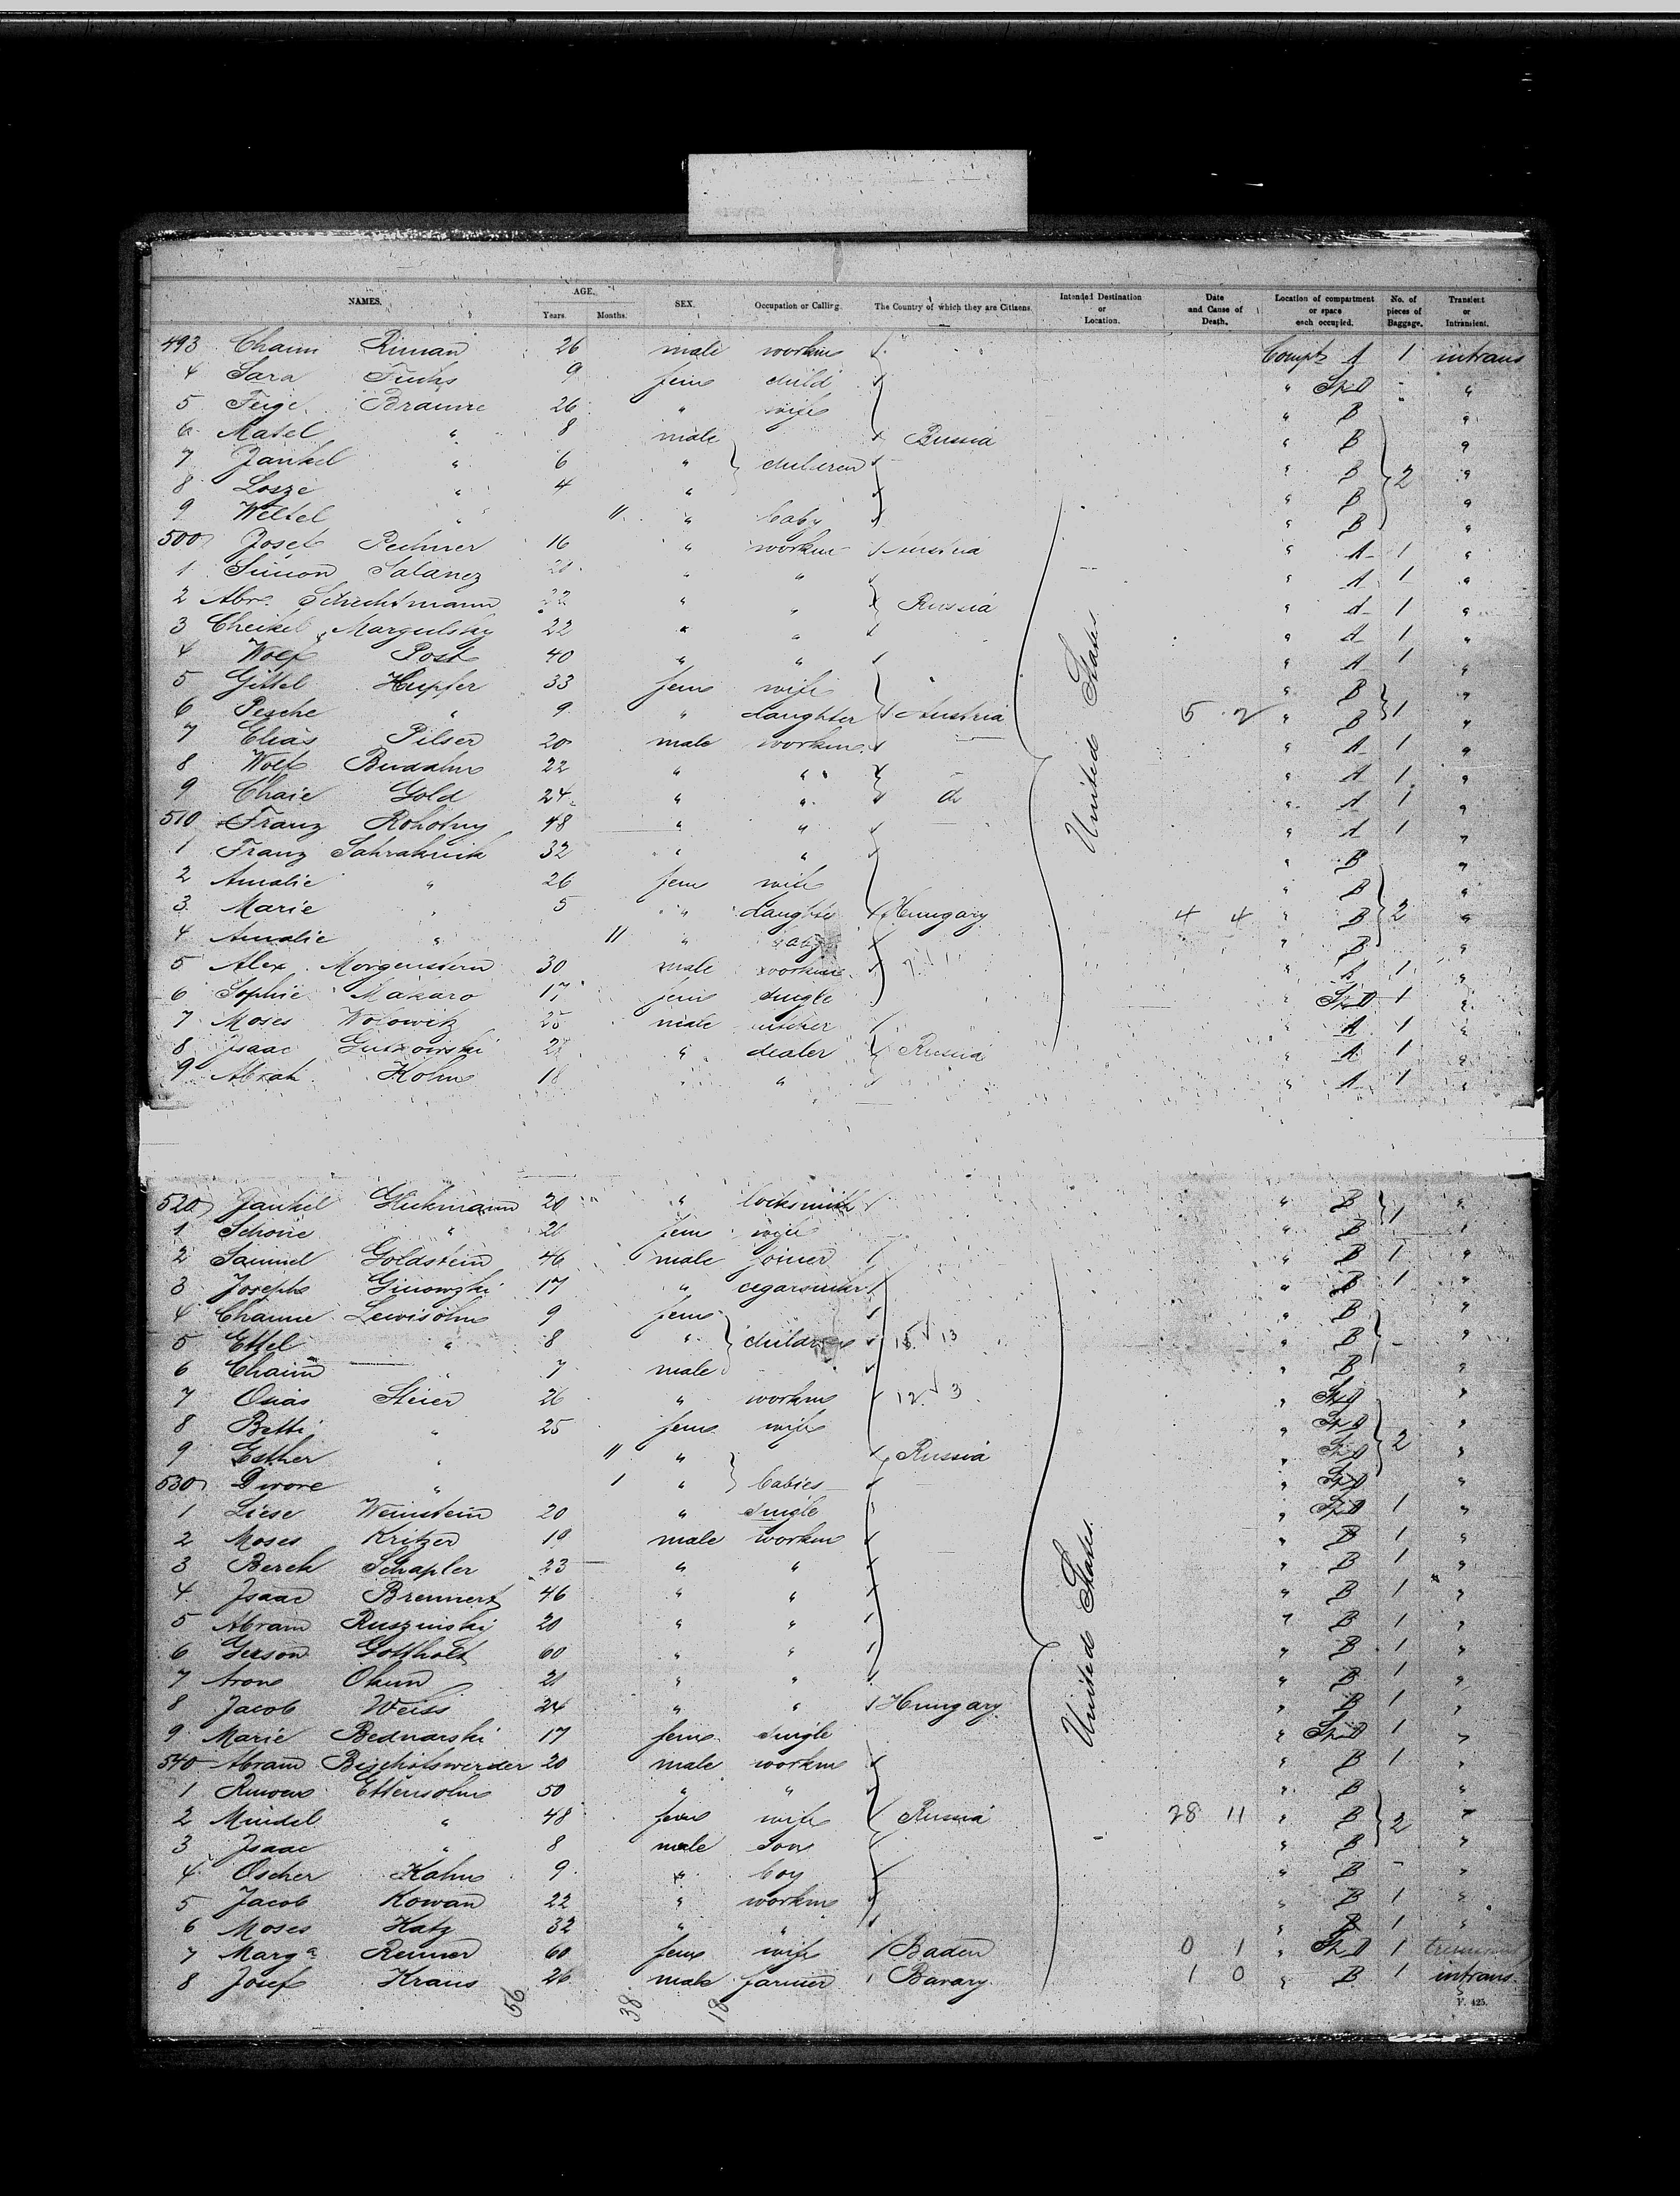 NAMES. AGE. Years. Months. SEX. Occupation or Calling. The Country of which they are Citizens. Intended Destination or Location. Date and Cause of Death. Location of compartment or space each occupied. No. of pieces of Baggage. Transient or Intransient.
493 Chaim Riman 26 male workm Compt A 1 intrans
4 Sara Fuchs 9 fem child " Sp.D - "
5 Feige Braune 26 " wife " B "
6 Matel " 8 male Russia " B "
7 Jankel " 6 " children " B 2 "
8 Losze " 4 " " B "
9 Weltel " 11 " baby " B "
500 Josef Pechner 16 " workm Austria " A 1 "
1 Simon Salanez " " " A 1 "
2 Abr. Schechtmann 22 " " Russia " A 1 "
3 Cheikel Margulsky 22 " " " A 1 "
4 Wolf Post 40 " " " A 1 "
5 Gittel Hupfer 33 fem wife " B "
6 Pesche " 9 " daughter Austria 5 2 " B 1 "
7 Elias Pilser 20 male workm " A 1 "
8 Wolf 22 " " " A 1 "
9 Chaie Gold 24 " " do " A 1 "
510 Franz Rohotny 48 " " " A 1 "
1 Franz 32 " " " B "
2 Amalie " 26 fem wife " B "
3 Marie " 5 " daughter Hungary 4 4 " B 2 "
4 Amalie " 11 " baby " B "
5 Alex Morgenstern 30 male workm " A 1 "
6 Sophie Makaro 17 fem single Sp.D 1 "
7 Moses Wolowitz 25 male " A 1 "
8 Isaac Gutkowski " dealer Russia " A 1 "
9 Abrah. Kohn 18 " " " A 1 "
United States
520 Jankel Glickmann 20 " locksmith " B 1 "
1 Schone " 20 fem wife " B "
2 Samuel Goldstein 46 male joiner " B 1 "
3 Joseph Ginowzki 17 " cegarmakr " B 1 "
4 Channe Lewisohn 9 fem " B "
5 Ettel " 8 " children 15 13 " B - "
6 Chaim " 7 male " B "
7 Osias Steier 26 " workm 12 3 " Sp.D "
8 Betti " 25 fem wife " Sp.D "
9 Esther " 11 " Russia " Sp.D 2 "
530 Dwore " 1 " babies " Sp.D "
1 Liese Weinstein 20 " single " Sp.D 1 "
2 Moses Kritzer 19 male workm " B 1 "
3 Berek Schapler 23 " " " B 1 "
4 Isaac Brennert 46 " " " B 1 "
5 Abram Ruszinski 20 " " " B 1 "
6 Gerson Gottholt 60 " " " B 1 "
7 Aron Okun 21 " " " B 1 "
8 Jacob Weiss 24 " " Hungary " B 1 "
9 Marie Bednarski 17 fem single " Sp.D 1 "
540 Abram Bischofswerder 20 male workm " B 1 "
1 Ruwen Ettensohn 50 " " " B "
2 Mindel " 48 fem wife Russia 28 11 " B 2 "
3 Isaac " 8 male son " B "
4 Oscher Kahn 9 " boy " B - "
5 Jacob Kowan 22 " workm " B 1 "
6 Moses Katz 32 " " " B 1 "
7 Marg.a Renner 60 fem wife Baden 0 1 " Sp.D 1
8 Josef Kraus 26 male farmer Bavary 1 0 " B 1 intrans.
United States.
56 38 18
F. 425.